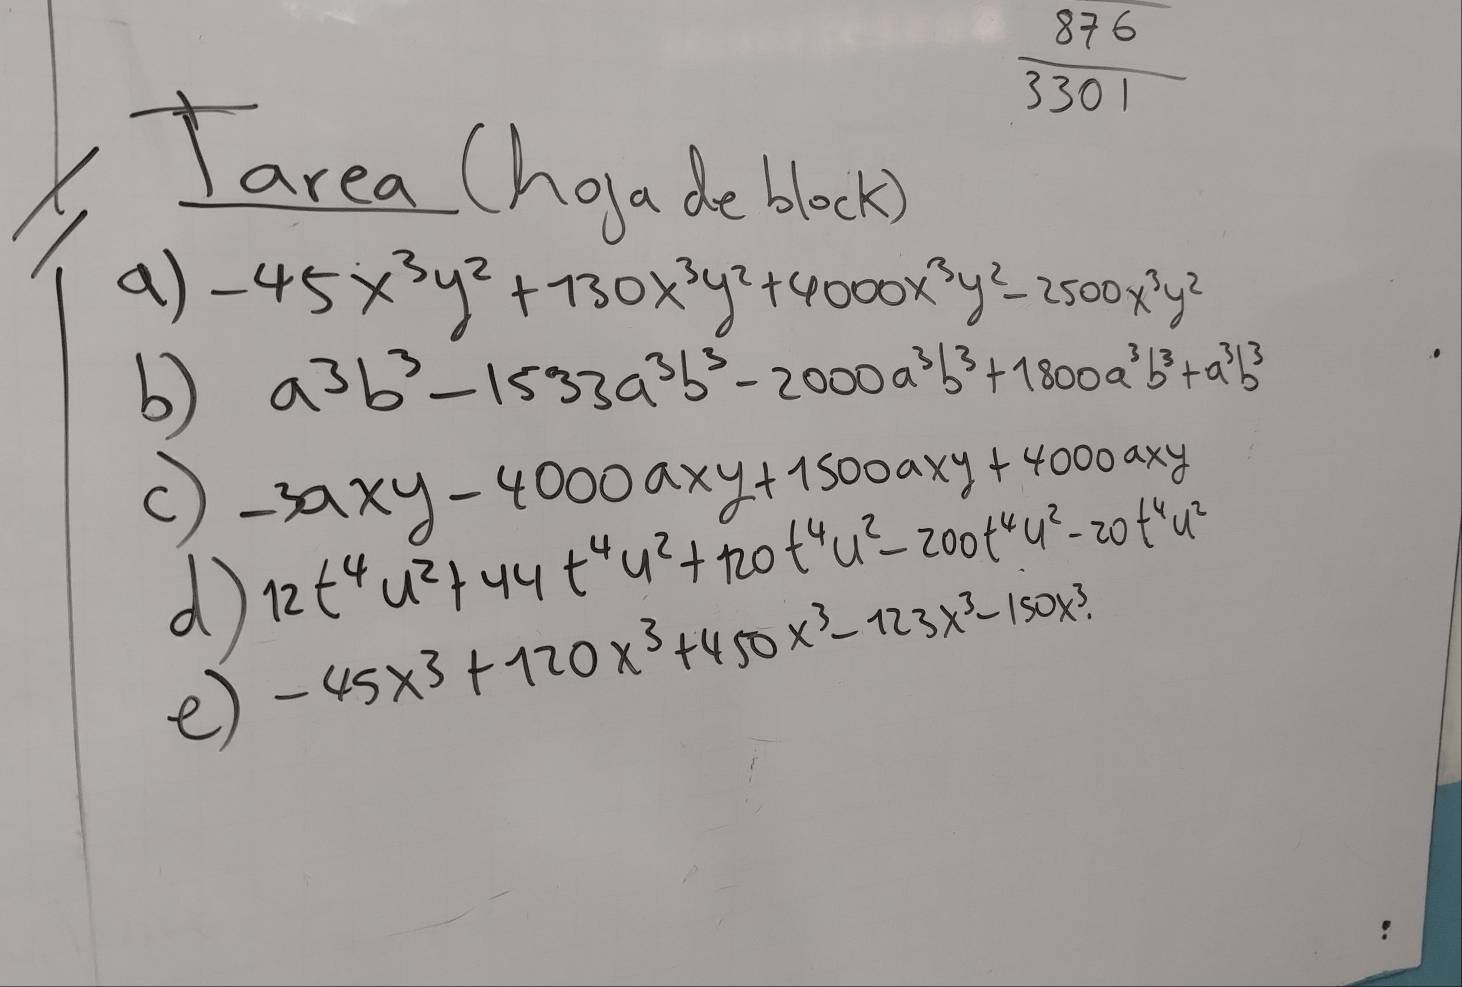 876
3301
Tarea (hoja de block)
a) -45x³y²+130x³y²+4000x³y²-2500x³y²
b) a³b³-1533a³b³-2000a³b³+1800a³b³+a³b³
c) -3axy-4000axy+1500axy+4000axy
d) 12t⁴u²+44t⁴u²+120t⁴u²-200t⁴u²-20t⁴u²
e) -45x³+120x³+450x³-123x³-150x³.